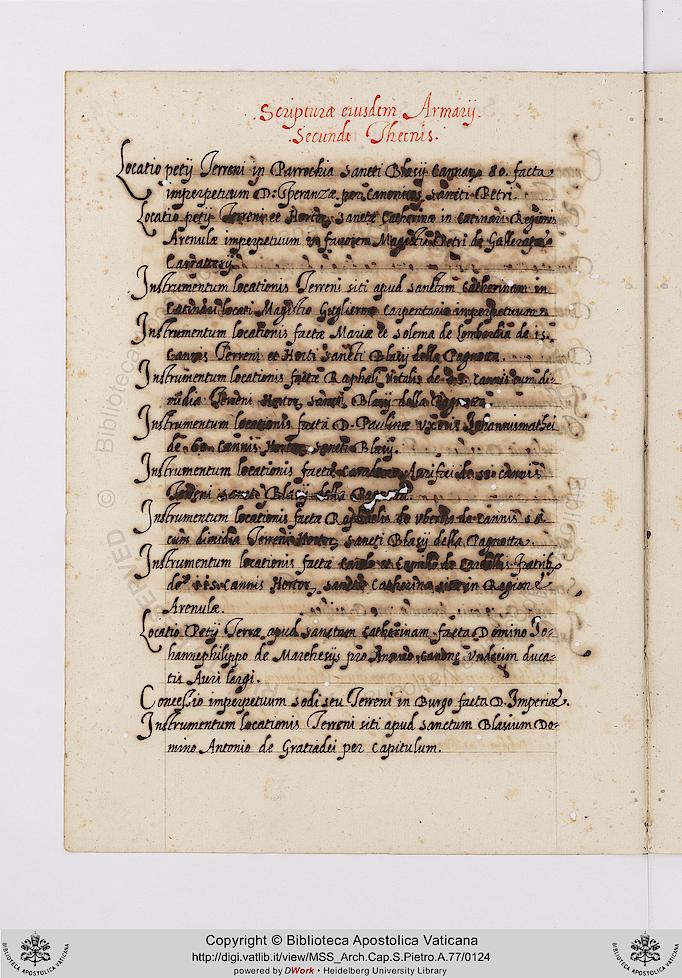 Scripturæ eiusdem Armarij.
Secundæ Thecnis.
Locatio petij Terreni in Parrochia Sancti Blasij Cannarz 80. facta
imperpetuum D: Speranzæ per Canonicos Sancti Petri.
Locatio petij Terreni et Hortor Sanctæ Catherinæ in Catinari Regionis
Arenulæ imperpetuum in favorem Magistri Petri de
Instrumentum locationis Terreni siti apud Sanctam Catherinam in
locati Magistro Guglielmo Carpentario imperpetuum.
Instrumentum locationis factæ Mariæ et Solema de Lombardia de 15.
Cannis Terreni et Horti Sancti Blasij della Pagnotta
Instrumentum locationis factæ Raphaeli Vitalis de cannis cum di-
midia Terreni Hortor Sancti Blasij della Pagnotta.
Instrumentum locationis facta D. Paulinæ uxoris Johannismathei
de 60. Cannis Hortor Sancti Blasij.
Instrumentum locationis factæ Aurifici de cannis
Terreni Blasij della Pagnotta.
Instrumentum locationis factæ Raphaelis de Uberto de Cannis
cum dimidia Terreni Hortor Sancti Blasij della Pagnotta.
Instrumentum locationis factæ Carolo et Camillo de fratrib
de 115. Cannis Hortor Sanctæ Catherinæ in Regione
Arenulæ.
Locatio Petij Terræ apud Sanctam Catherinam facta Domino Jo-
hannephilippo de Marchesijs pro Annuo Canone Undecim duca-
tis Auri largi.
Concessio imperpetuum Sodi seu Terreni in Burgo facta D. Imperiæ.
Instrumentum locationis Terreni siti apud Sanctum Blasium Do-
mino Antonio de Gratiadei per Capitulum.
© Biblioteca
Copyright © Biblioteca Apostolica Vaticana
http://digi.vatlib.it/view/MSS_Arch.Cap.S.Pietro.A.77/0124
powered by DWork • Heidelberg University Library